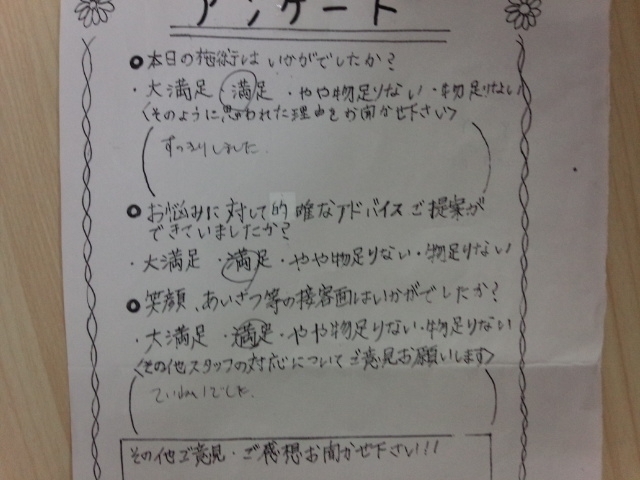 アンケート
本日の施術はいかがでしたか?
・大満足 ・満足 ・やや物足りない ・物足りない
〈そのように思われた理由をお聞かせ下さい〉
すっきりしました
お悩みに対して的確なアドバイスご提案が
できていましたか?
・大満足 ・満足 ・やや物足りない ・物足りない
笑顔、あいさつ等の接客面はいかがでしたか?
・大満足 ・満足 ・やや物足りない ・物足りない
〈その他スタッフの対応についてご意見お願いします〉
ていねいでした
その他ご意見・ご感想お聞かせ下さい!!!